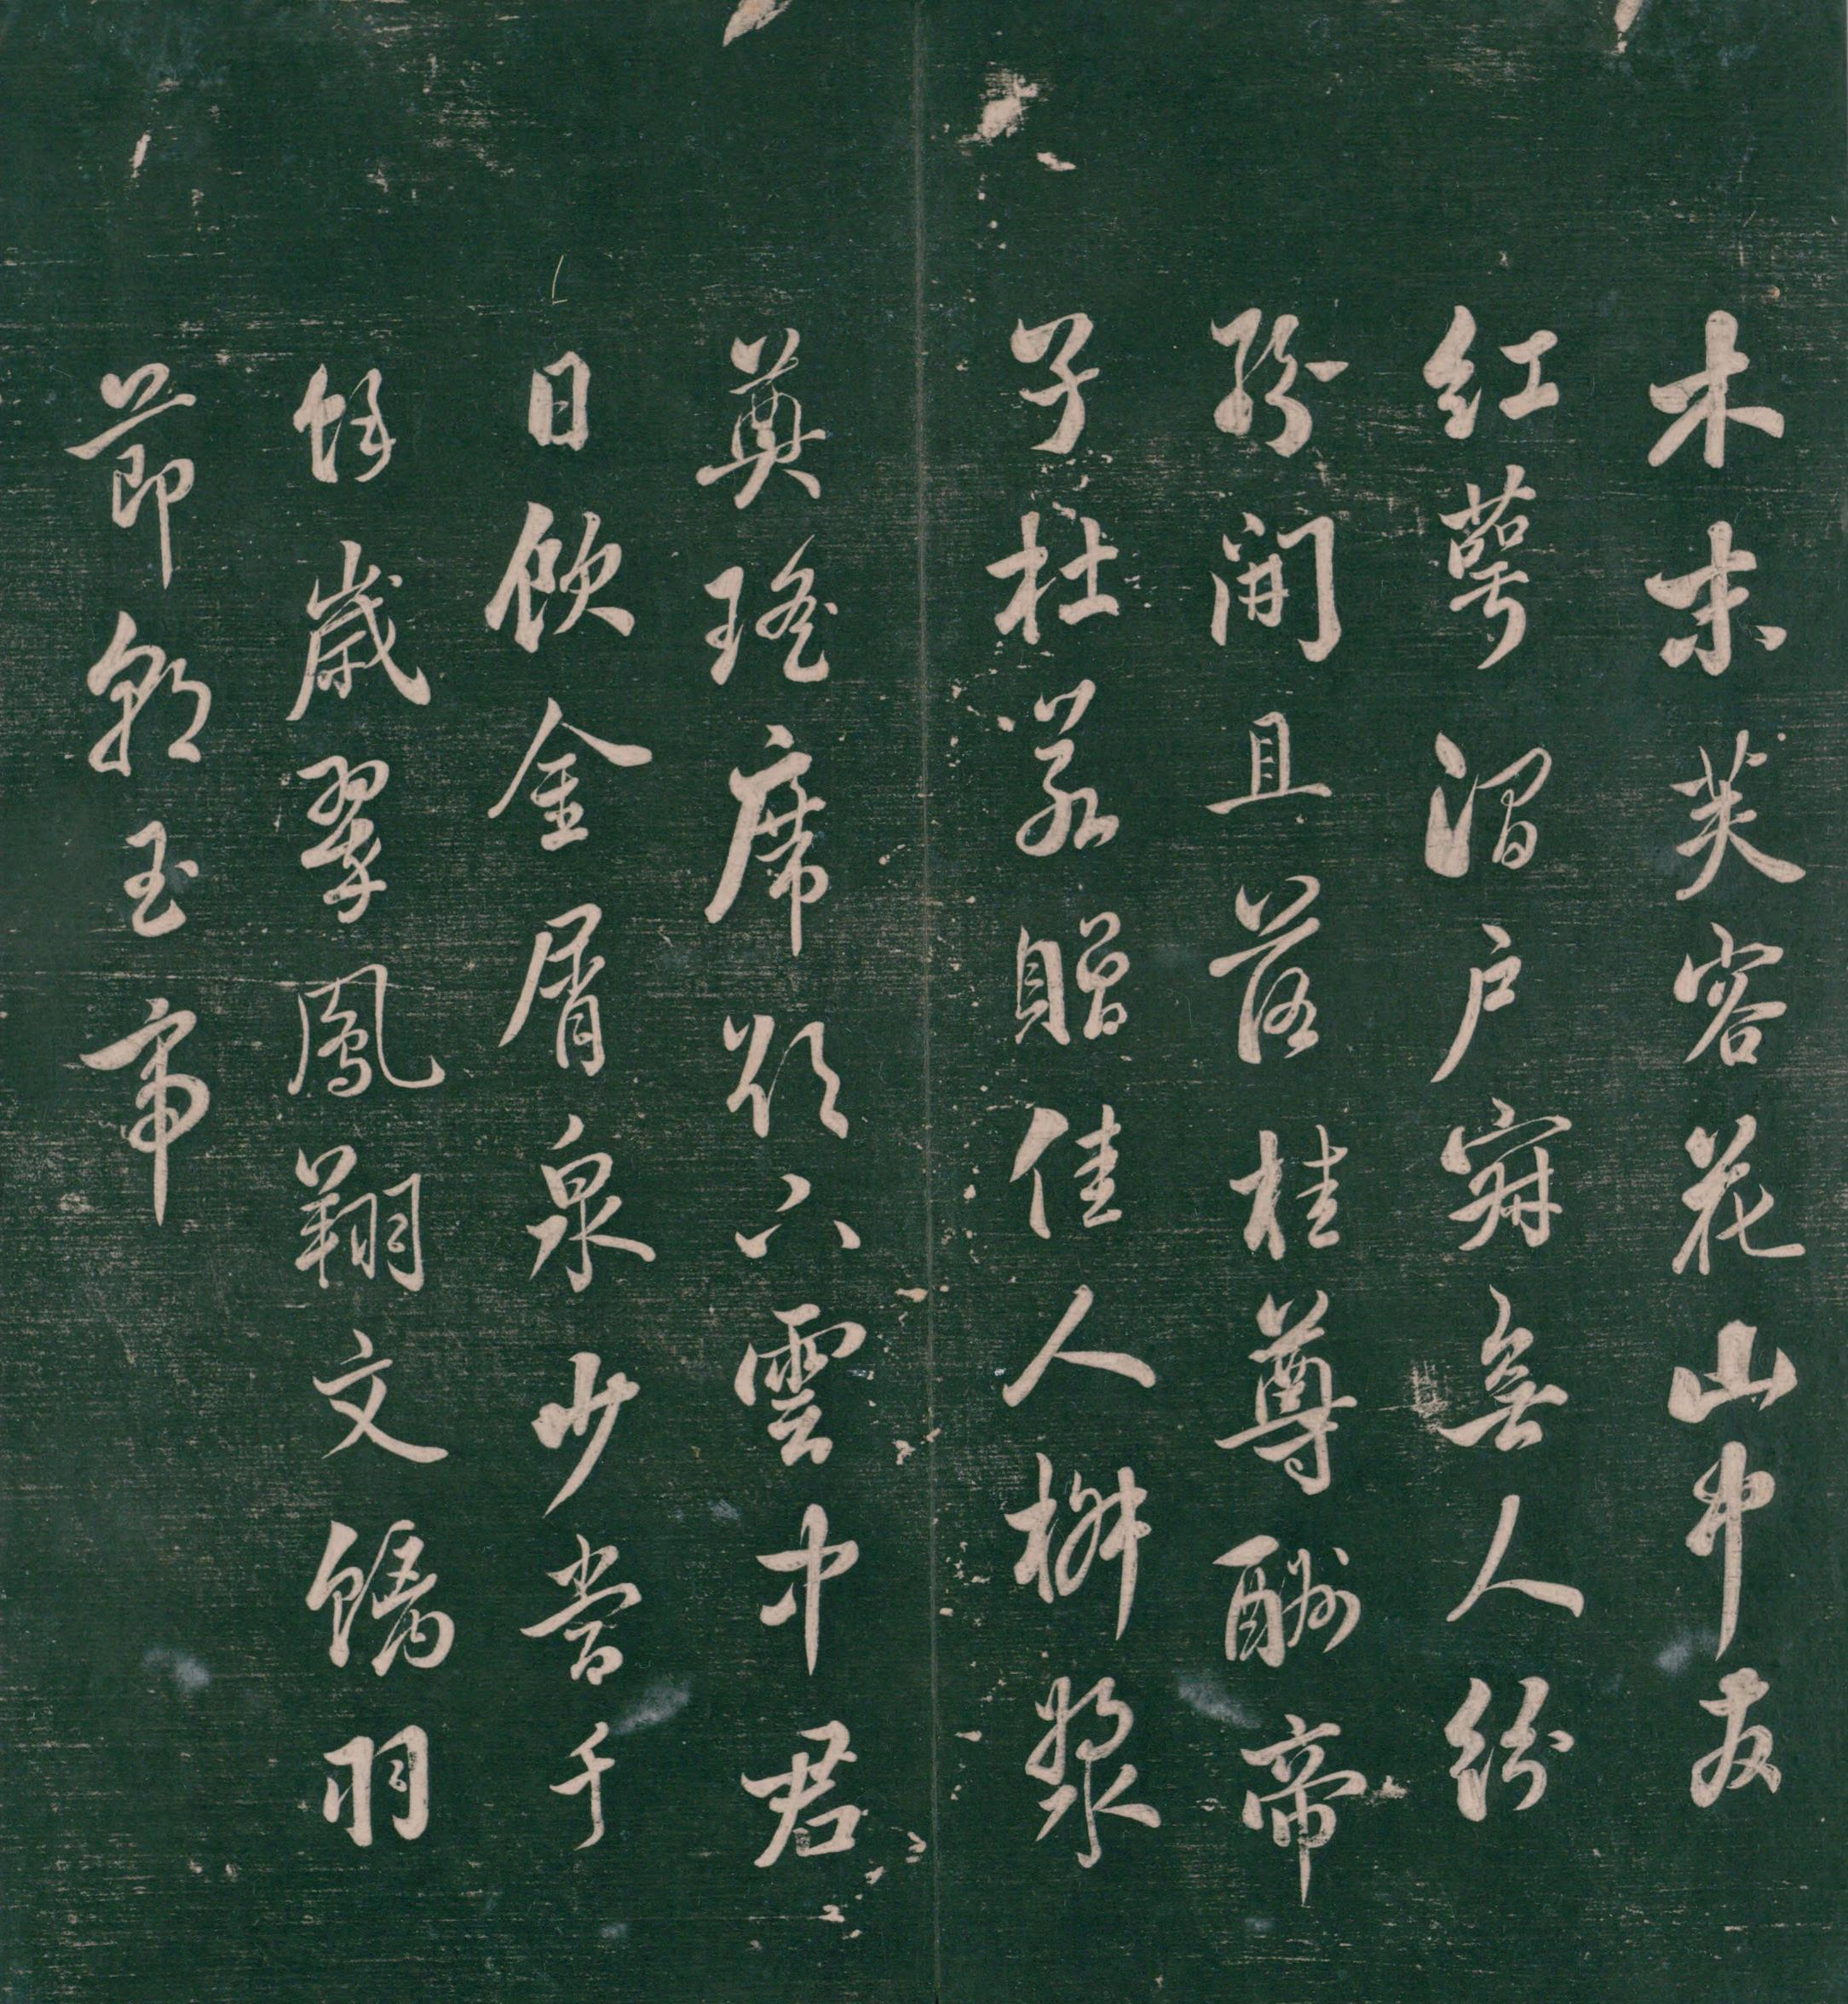 木末芙容花山中發
紅萼澗戶寂無人紛
紛開且落桂尊酬帝
子杜若贈佳人椒漿
奠瑤席欲下雲中君
日飲金屑泉少當千
餘歲翠鳳翔文螭羽
節朝玉帝